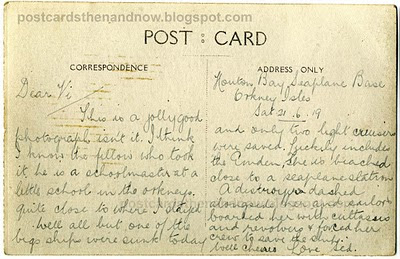 postcardsthenandnow.blogspot.com
POST : CARD
CORRESPONDENCE
Dear Vi
This is a jolly good
photograph isn't it. I think
I know the fellow who took
it, he is a schoolmaster at a
little school in the orkneys.
quite close to where I stayed
Well all but one of the
big ships were sunk today
ADDRESS ONLY
Houton Bay Seaplane Base
Orkney Isles
Sat 21.6.19
and only two light cruisers
were saved. luckily includes
the Emden, she is beached
close to a seaplane station
A destroyer dashed
alongside her and sailors
boarded her with cutlasses
and revolvers & forced her
crew to save the ship.
Well cheerio Love Sid.
postcardsthenandnow.blogspot.com